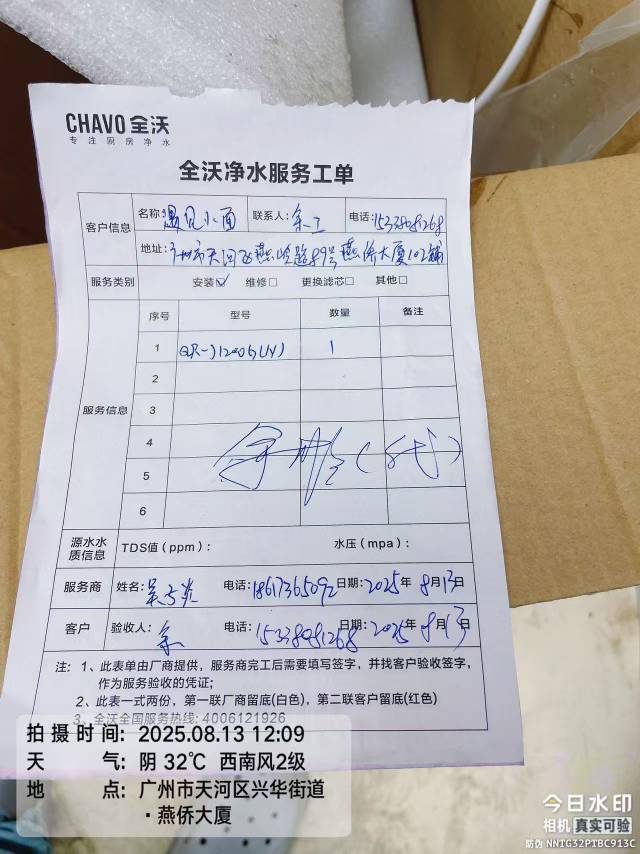 CHAVO 全沃
专注厨房净水
全沃净水服务工单
客户信息 名称: 遇见小面 联系人: 余工 电话: 15338081268
地址: 广州市天河区燕岭路89号燕侨大厦102铺
服务类别 安装☑ 维修□ 更换滤芯□ 其他□
服务信息 序号 型号 数量 备注
1 1
2
3
4
5
6
源水水质信息 TDS值(ppm): 水压(mpa):
服务商 姓名: 电话: 18617365092 日期: 2025年8月13日
客户 验收人: 余 电话: 15338081268 日期: 2025年8月13日
注: 1、此表单由厂商提供，服务商完工后需要填写签字，并找客户验收签字，
作为服务验收的凭证;
2、此表一式两份，第一联厂商留底(白色)，第二联客户留底(红色)
3、全沃全国服务热线: 4006121926
拍摄时间: 2025.08.13 12:09
天气: 阴 32℃ 西南风2级
地点: 广州市天河区兴华街道
·燕侨大厦
今日水印
相机 真实可验
防伪 NNTG32PTBC913C